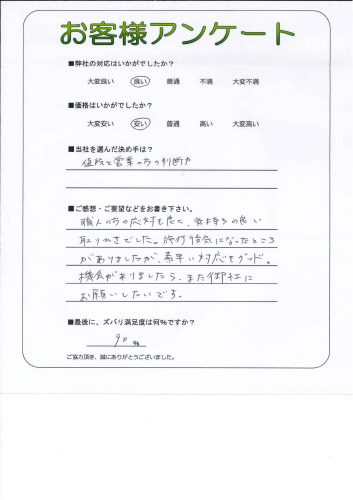 お客様アンケート
■弊社の対応はいかがでしたか?
大変良い 良い 普通 不満 大変不満
■価格はいかがでしたか?
大変安い 安い 普通 高い 大変高い
■当社を選んだ決め手は?
値段と営業の方の判断力
■ご感想・ご要望などをお書き下さい。
職人の方の応対も良く、気持ちの良い
取り引きでした。施行後気になったところ
がありましたが、素早い対応もグッド。
機会がありましたら、また御社に
お願いしたいです。
■最後に、ズバリ満足度は何%ですか?
90 %
ご協力頂き、誠にありがとうございました。